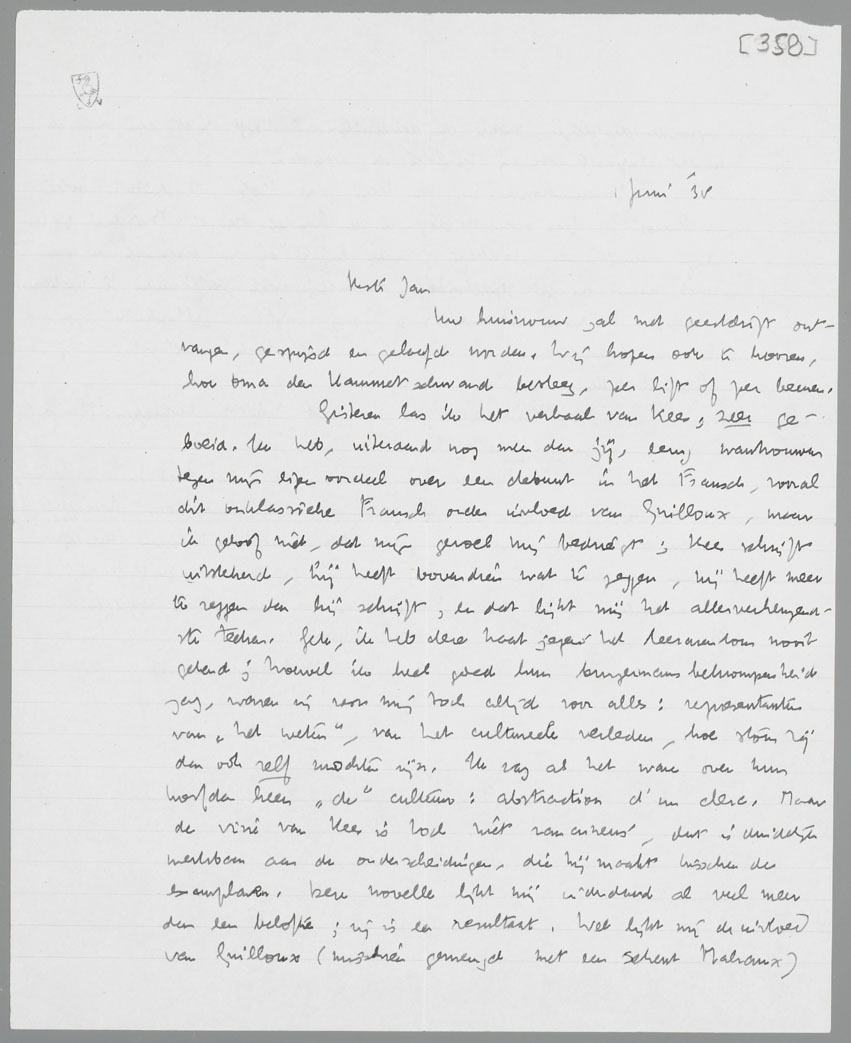 [358]
1 Juni '38
Beste Jan
Uw huisvrouw zal met geestdrift ont-
vangen, gespijsd en geloofd worden. Wij hopen ook te hooren,
hoe oma den Hammetschwand besteeg, per lift of per beenen.
Gisteren las ik het verhaal van Kees, zeer ge-
boeid. Ik heb, uiteraard nog meer dan jij, eenig wantrouwen
tegen mijn eigen oordeel over een debuut in het Fransch, vooral
dit onklassieke Fransch onder invloed van Guilloux, maar
ik geloof niet, dat mijn gevoel mij bedriegt; Kees schrijft
uitstekend, hij heeft bovendien wat te zeggen, hij heeft meer
te zeggen dan hij schrijft, en dat lijkt mij het allerverheugend-
ste teeken. Gek, ik heb deze haat jegens het leeraarendom nooit
gekend; hoewel ik heel goed hun burgermansbekrompenheid
zag, waren zij voor mij toch altijd voor alles: representanten
van „het weten", van het cultureele verleden, hoe stom zij
dan ook zelf mochten zijn. Ik zag als het ware over hun
hoofden heen „de" cultuur: abstraction d'un clerc. Maar
de visie van Kees is toch niet rancuneus, dat is duidelijk
merkbaar aan de onderscheidingen, die hij maakt tusschen de
exemplaren. Deze novelle lijkt mij inderdaad al veel meer
dan een belofte; zij is een resultaat. Wel lijkt mij de invloed
van Guilloux (misschien gemengd met een scheut Malraux)